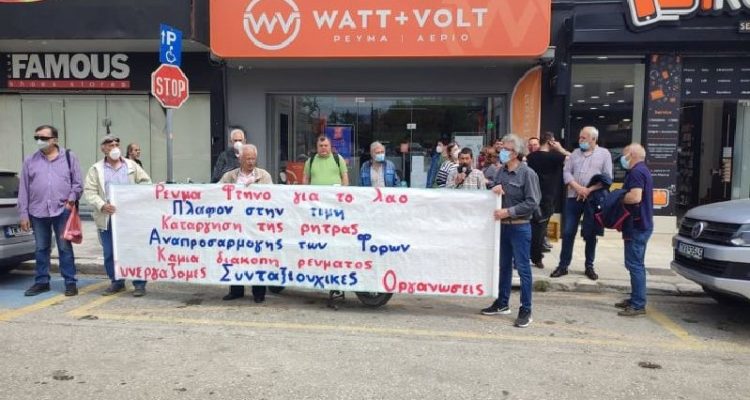 WATT+VOLT
ΡΕΥΜΑ | ΑΕΡΙΟ
FAMOUS
shoes stores
P
STOP
Ρευμα Φτηνο για το λαο
Πλαφον στην τιμη
Καταργηση της ρητρας
Αναπροσαρμογης των Φορων
Καμια διακοπη ρευματος
υνεργαζομες Συνταξιουχικες Οργανωσεις